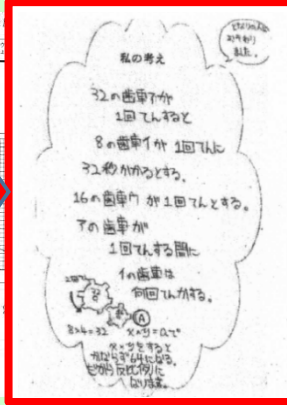 私の考え
32の歯車アが
1回てんすると
8の歯車イが 1回てんに
32秒かかるとする。
16の歯車ウ が1回てんとする。
アの歯車が
1回てんする間に
イの歯車は
何回てんかする。
A
8×4=32
x×y=aで
x×yをすると
かならず64になる。
だから反比例に
なります。